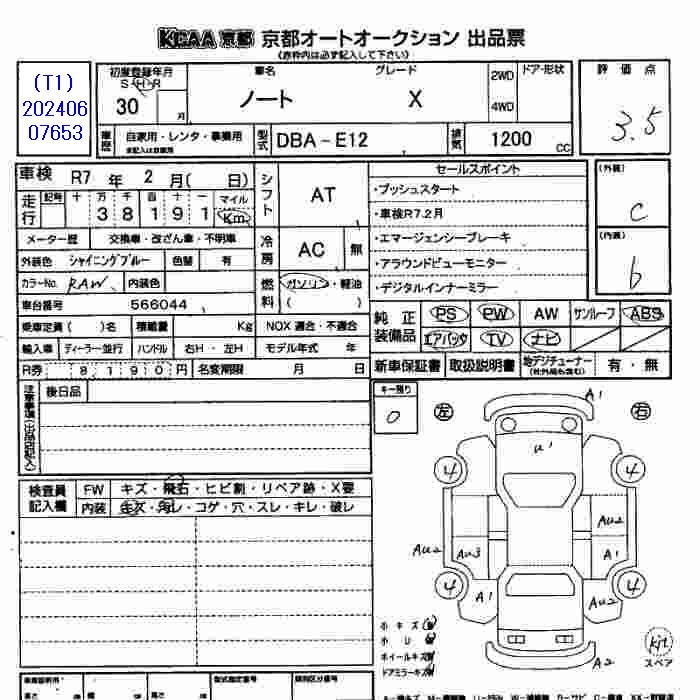 KCAA 京都 京都オートオークション 出品票
(赤枠内は必ず記入して下さい)
(T1)
202406
07653
初度登録年月
S・H・R
30 月
車名
ノート
グレード
X
2WD
4WD
ドア・形状
評価点
3.5
車歴
自家用・レンタ・事業用
未記入は自家用
型式
DBA-E12
排気
1200 CC
車検 R7年 2月(日)
走行
記号 十 万 千 百 十 一 マイル
38191 Km
メーター歴 交換車・改ざん車・不明車
外装色 シャイニングブルー 色替 有
カラーNo. RAW 内装色
車台番号 566044
乗車定員( )名 積載量 Kg
輸入車 ディーラー並行 ハンドル 右H・左H
R券 8190円 名変期限 月 日
シフト AT
冷房 AC 無
燃料 ガソリン・軽油
( )
NOX 適合・不適合
モデル年式 年
セールスポイント
・プッシュスタート
・車検R7.2月
・エマージェンシーブレーキ
・アラウンドビューモニター
・デジタルインナーミラー
(外装)
C
(内装)
b
純正装備品
PS PW AW サンルーフ ABS
エアバック TV ナビ
新車保証書 取扱説明書 地デジチューナー 有・無
(社外品も含む)
注意事項(出品店記入)
後日品
キー預り
0
左 右
検査員記入欄
FW キズ・飛石・ヒビ割・リペア跡・X要
内装 キズ・汚レ・コゲ・穴・スレ・キレ・破レ
A1
U1
4 4
AU2
AU2 AU3 A1
4 4
A1 AU2
A2
ホキズ
ホリ
ホイールキズ
ドアミラーキズ
スペア
車庫証明用
長さ
高さ
型式指定番号
類別区分番号